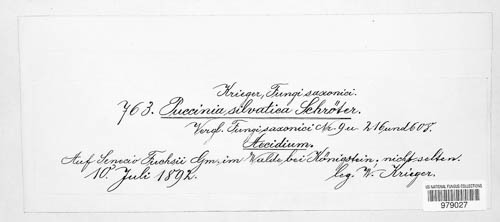 Krieger, Fungi saxonici.
763. Puccinia silvatica Schröter.
Vergl. Fungi saxonici Nr. 9 u. 216 und 605.
Aecidium.
Auf Senecio Fuchsii Gm., im Walde bei Königstein, nicht selten.
10. Juli 1892. leg. W. Krieger.
US NATIONAL FUNGUS COLLECTIONS
979027